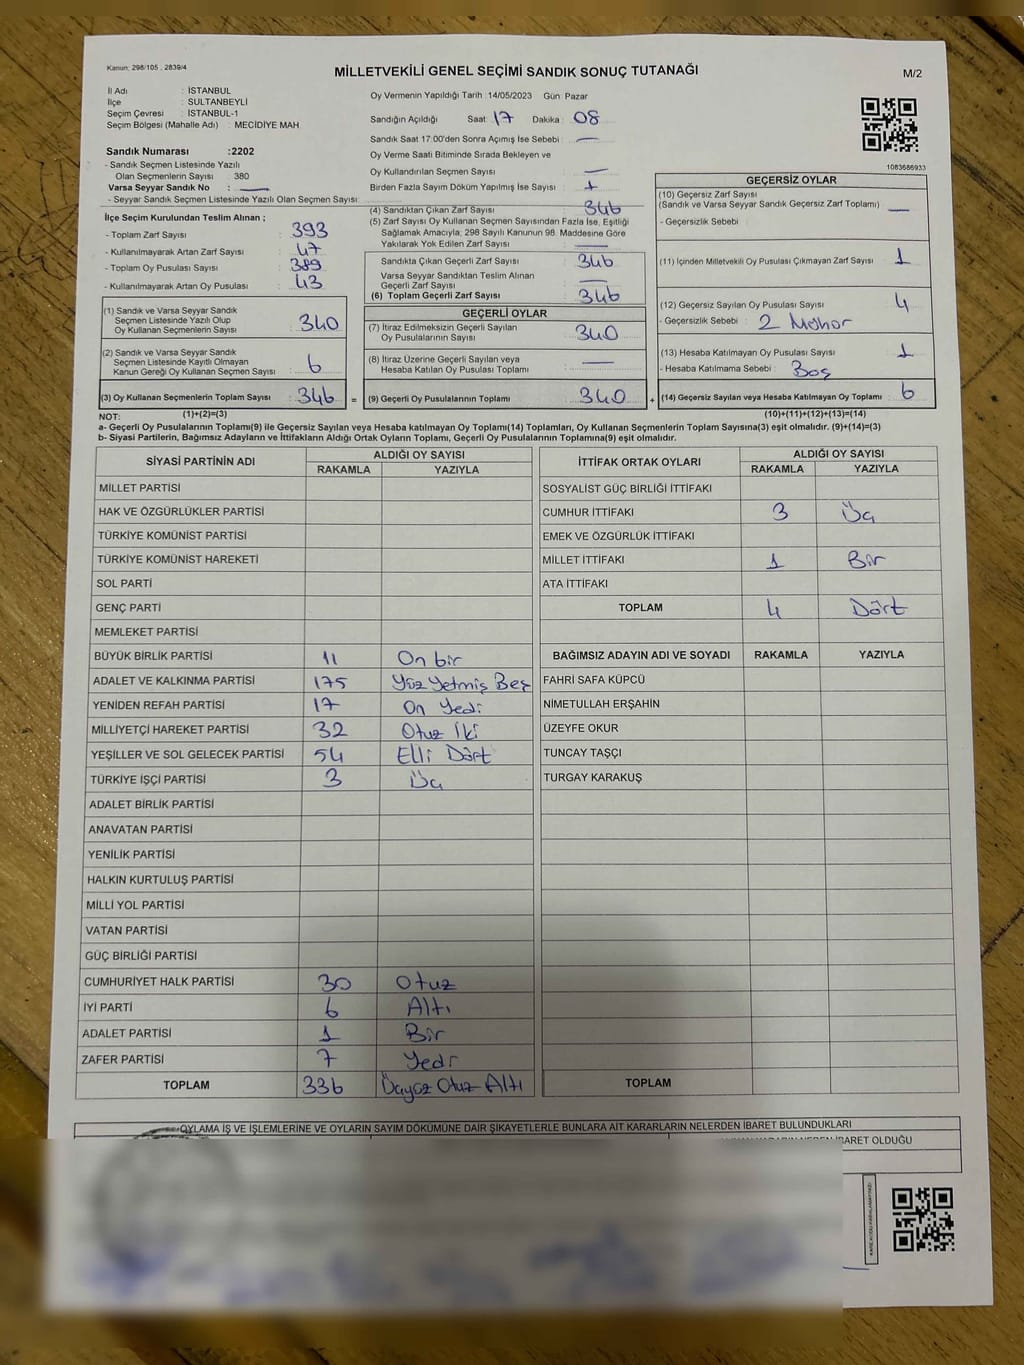 Kanun: 298/105 , 2839/4
MİLLETVEKİLİ GENEL SEÇİMİ SANDIK SONUÇ TUTANAĞI
M/2
İl Adı : İSTANBUL
İlçe : SULTANBEYLİ
Seçim Çevresi : İSTANBUL-1
Seçim Bölgesi (Mahalle Adı) : MECİDİYE MAH
Sandık Numarası :2202
- Sandık Seçmen Listesinde Yazılı
Olan Seçmenlerin Sayısı : 380
Varsa Seyyar Sandık No : —
- Seyyar Sandık Seçmen Listesinde Yazılı Olan Seçmen Sayısı:
Oy Vermenin Yapıldığı Tarih :14/05/2023 Gün: Pazar
Sandığın Açıldığı Saat: 17 Dakika : 08
Sandık Saat 17:00'den Sonra Açımış İse Sebebi : —
Oy Verme Saati Bitiminde Sırada Bekleyen ve
Oy Kullandırılan Seçmen Sayısı : —
Birden Fazla Sayım Döküm Yapılmış İse Sayısı : 1
1083686933
İlçe Seçim Kurulundan Teslim Alınan ;
- Toplam Zarf Sayısı : 393
- Kullanılmayarak Artan Zarf Sayısı : 47
- Toplam Oy Pusulası Sayısı : 389
- Kullanılmayarak Artan Oy Pusulası : 43
(1) Sandık ve Varsa Seyyar Sandık
Seçmen Listesinde Yazılı Olup
Oy Kullanan Seçmenlerin Sayısı : 340
(2) Sandık ve Varsa Seyyar Sandık
Seçmen Listesinde Kayıtlı Olmayan
Kanun Gereği Oy Kullanan Seçmen Sayısı : 6
(3) Oy Kullanan Seçmenlerin Toplam Sayısı : 346 =
(4) Sandıktan Çıkan Zarf Sayısı : 346
(5) Zarf Sayısı Oy Kullanan Seçmen Sayısından Fazla İse, Eşitliği
Sağlamak Amacıyla; 298 Sayılı Kanunun 98. Maddesine Göre
Yakılarak Yok Edilen Zarf Sayısı : —
Sandıkta Çıkan Geçerli Zarf Sayısı : 346
Varsa Seyyar Sandıktan Teslim Alınan
Geçerli Zarf Sayısı : —
(6) Toplam Geçerli Zarf Sayısı : 346
GEÇERLİ OYLAR
(7) İtiraz Edilmeksizin Geçerli Sayılan
Oy Pusulalarının Sayısı : 340
(8) İtiraz Üzerine Geçerli Sayılan veya
Hesaba Katılan Oy Pusulası Toplamı : —
(9) Geçerli Oy Pusulalarının Toplamı : 340 +
GEÇERSİZ OYLAR
(10) Geçersiz Zarf Sayısı
(Sandık ve Varsa Seyyar Sandık Geçersiz Zarf Toplamı) : —
- Geçersizlik Sebebi :
(11) İçinden Milletvekili Oy Pusulası Çıkmayan Zarf Sayısı : 1
(12) Geçersiz Sayılan Oy Pusulası Sayısı : 4
- Geçersizlik Sebebi : 2 Mohor
(13) Hesaba Katılmayan Oy Pusulası Sayısı : 1
- Hesaba Katılmama Sebebi : Boş
(14) Geçersiz Sayılan veya Hesaba Katılmayan Oy Toplamı : 6
NOT: (1)+(2)=(3) (10)+(11)+(12)+(13)=(14)
a- Geçerli Oy Pusulalarının Toplamı(9) ile Geçersiz Sayılan veya Hesaba katılmayan Oy Toplamı(14) Toplamları, Oy Kullanan Seçmenlerin Toplam Sayısına(3) eşit olmalıdır. (9)+(14)=(3)
b- Siyasi Partilerin, Bağımsız Adayların ve İttifakların Aldığı Ortak Oyların Toplamı, Geçerli Oy Pusulalarının Toplamına(9) eşit olmalıdır.
SİYASİ PARTİNİN ADI ALDIĞI OY SAYISI
RAKAMLA YAZIYLA
MİLLET PARTİSİ
HAK VE ÖZGÜRLÜKLER PARTİSİ
TÜRKİYE KOMÜNİST PARTİSİ
TÜRKİYE KOMÜNİST HAREKETİ
SOL PARTİ
GENÇ PARTİ
MEMLEKET PARTİSİ
BÜYÜK BİRLİK PARTİSİ 11 On bir
ADALET VE KALKINMA PARTİSİ 175 Yüz Yetmiş Beş
YENİDEN REFAH PARTİSİ 17 On Yedi
MİLLİYETÇİ HAREKET PARTİSİ 32 Otuz İki
YEŞİLLER VE SOL GELECEK PARTİSİ 54 Elli Dört
TÜRKİYE İŞÇİ PARTİSİ 3 Üç
ADALET BİRLİK PARTİSİ
ANAVATAN PARTİSİ
YENİLİK PARTİSİ
HALKIN KURTULUŞ PARTİSİ
MİLLİ YOL PARTİSİ
VATAN PARTİSİ
GÜÇ BİRLİĞİ PARTİSİ
CUMHURİYET HALK PARTİSİ 30 Otuz
İYİ PARTİ 6 Altı
ADALET PARTİSİ 1 Bir
ZAFER PARTİSİ 7 Yedi
TOPLAM 336 Üçyüz Otuz Altı
İTTİFAK ORTAK OYLARI ALDIĞI OY SAYISI
RAKAMLA YAZIYLA
SOSYALİST GÜÇ BİRLİĞİ İTTİFAKI
CUMHUR İTTİFAKI 3 Üç
EMEK VE ÖZGÜRLÜK İTTİFAKI
MİLLET İTTİFAKI 1 Bir
ATA İTTİFAKI
TOPLAM 4 Dört
BAĞIMSIZ ADAYIN ADI VE SOYADI RAKAMLA YAZIYLA
FAHRİ SAFA KÜPCÜ
NİMETULLAH ERŞAHİN
ÜZEYFE OKUR
TUNCAY TAŞÇI
TURGAY KARAKUŞ
TOPLAM
OYLAMA İŞ VE İŞLEMLERİNE VE OYLARIN SAYIM DÖKÜMÜNE DAİR ŞİKAYETLERLE BUNLARA AİT KARARLARIN NELERDEN İBARET BULUNDUKLARI
İBARET OLDUĞU